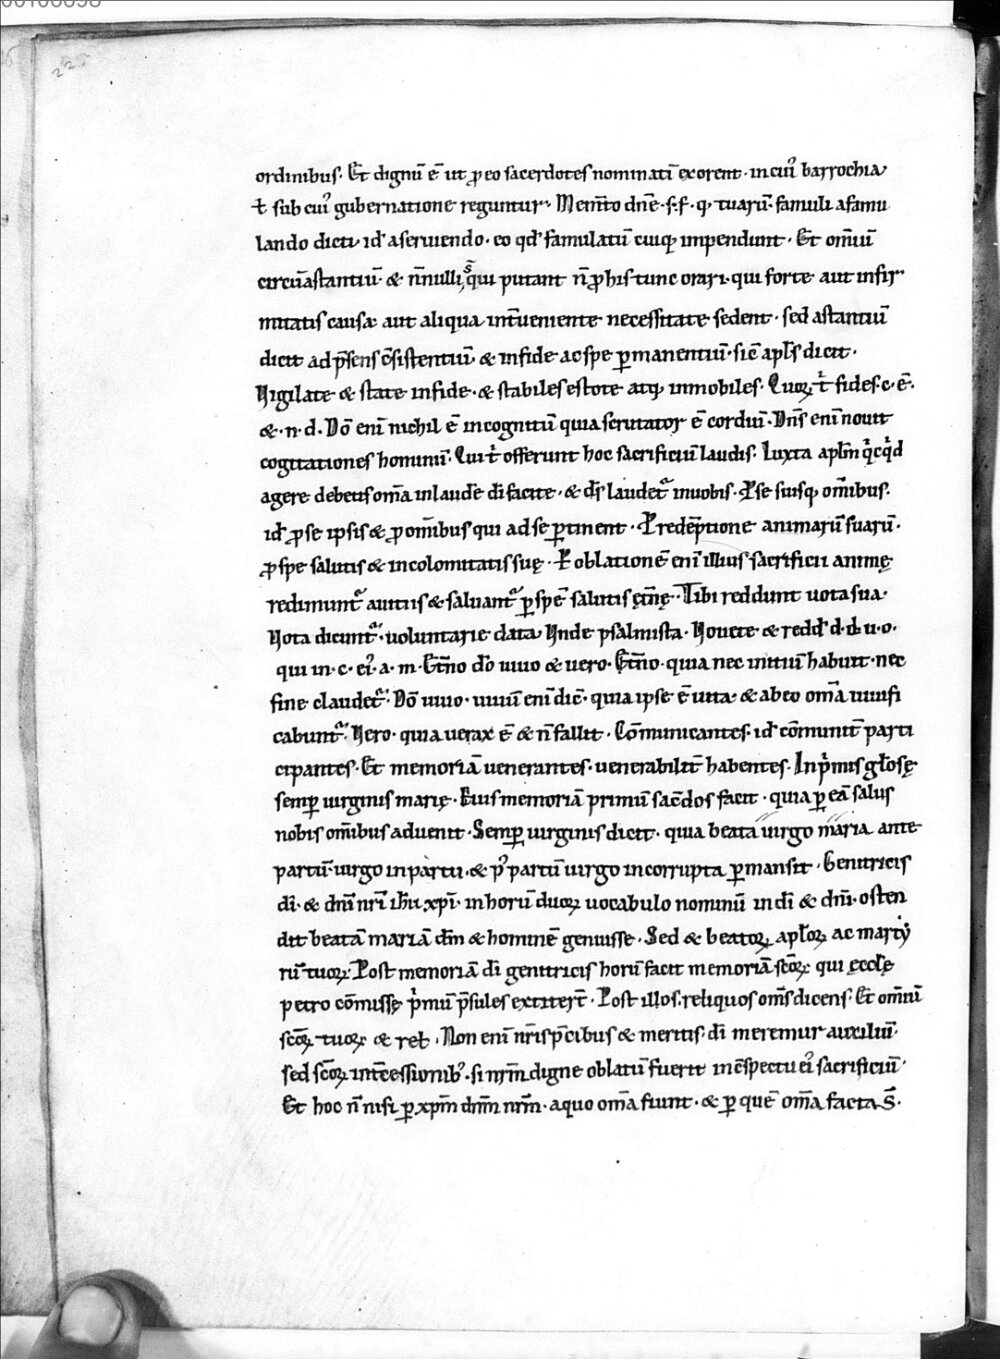 ordinibus. Et dignū ē ut ꝓ eo sacerdotes nominatī exorent. in cuiꝰ barrochia
ł sub cuiꝰ gubernatione reguntur. Mem̄to dn̄e .f.f. q. tuarū. famuli a famu
lando dicti. id ̕ a seruiendo. eo qd̕ famulatū cuiqꝫ impendunt. Et om̄iū
circūastantiū. & nn̄ulli s̄ qui putant n̄ ꝓ his tunc orari. qui forte aut infir
mitatis causa aut aliqua int̄ueniente necessitate sedent. sed astantiū
dicit ad p̄sens c̄sistentiū. & in fide ac spe ꝑmanentiū. sic̄ apl̄s dicit.
Vigilate & state in fide. & stabiles estote atqꝫ inmobiles. Quoꝝ t̍ fides .c. ē.
&. n. d. Dō eni̅ nichil ē incognitū quia scrutator ē cordiū. Dn̄s eni̅ nouit
cogitationes hominū. Qui t̍ offerunt hoc sacrificiū laudis. Iuxta aplm̄ q̍cq̍d
agere debetis om̄a in laudē dī facite. & dī s̄ laudet᷑ in uobis. Pse suisqꝫ om̄ibus.
id̕ ꝓ se ipsis & ꝓ om̄ibus qui ad se ꝑtinent. P redēptione animarū suarū.
ꝓ spe salutis & incolomitatis suę. P oblationē eni̅ illius sacrificii animę
redimunt᷑ a uitiis & saluant᷑ ꝑ spē salutis ęt̄nę. Tibi reddunt uota sua.
Vota dicunt᷑. uoluntarie data. Vnde psalmista. Vouete & redd̕ d. d. u. o.
qui in. c. eiꝰ. a. m. Et̄no dō uiuo & uero. Et̄no. quia nec initiū habuit. nec
fine claudet᷑. Dō uiuo. uiuū eni̅ dic̄. quia ipse ē uita. & ab eo om̄a uiuifi
cabunt᷑. Vero. quia uerax ē & n̄ fallit. Cōmunicantes. id̕ cōmunit̄ parti
cipantes. Et memoriā uenerantes. uenerabilit̄ habentes. In p̍mis gl̄osę
semꝑ uirginis marię. Eius memoriā primū sac̄dos facit. quia ꝑ eā salus
nobis om̄ibus aduenit. Semꝑ uirginis dicit. quia beata uirgo maria ante
partū. uirgo in partu. & pꝰ partū uirgo incorrupta ꝑmansit. Genitricis
dī. & dn̄i nr̄i ih̄u xp̄i. in horū duoꝝ uocabulo nominū in dī & dn̄i. osten
dit beatā mariā dm̄ & hominē genuisse. Sed & beatoꝝ apl̄oꝝ ac marty
rū tuoꝝ. Post memoriā dī genitricis horū facit memoriā sc̄oꝝ qui ęccl̄ę
petro cōmissę p̍mū p̄sules extiter̄t. Post illos. reliquos om̄s dicens. Et om̄iū
sc̄oꝝ tuoꝝ & rel̄. Non eni̅ nr̄is p̄cibus & meritis dī meremur auxiliū.
sed sc̄oꝝ int̄cessionibꝰ. si nr̄m digne oblatū fuerit in c̄spectu eiꝰ sacrificiū.
Et hoc n̄ nisi ꝑ xpm̄ dnm̄ nrm̄. a quo om̄a fiunt. & ꝑ quē om̄a facta s̄.